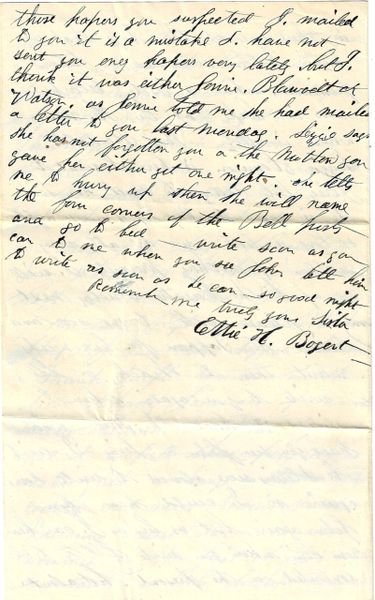 those papers you suspected I. mailed
to you it is a mistake I. have not
sent you eny papers very lately but I.
think it was either Jennie. Blauvelt or
Watson. as Jennie told me she had mailed
a letter to you last monday. Lizzie says
she has not forgotten you or the Mutton you
gave her either yet one night. she tells
me to hurry up then she will name
the four corners of the Bed posts
and go to bed — write soon as you
can to me when you see John tell him
to write as soon as he can — so good night
Remember me truly your Sister
Effie H. Bogert